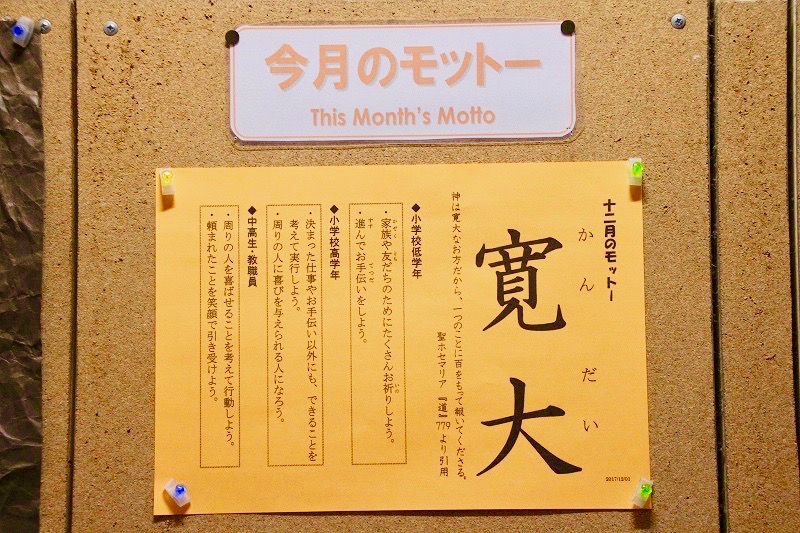 今月のモットー
This Month's Motto
十二月のモットー
かんだい
寛大
神は寛大なお方だから、一つのことに百をもって報いてくださる。
聖ホセマリア『道』779より引用
◆小学校低学年
・家族や友だちのためにたくさんお祈りしよう。
・進んでお手伝いをしよう。
◆小学校高学年
・決まった仕事やお手伝い以外にも、できることを
考えて実行しよう。
・周りの人に喜びを与えられる人になろう。
◆中高生・教職員
・周りの人を喜ばせることを考えて行動しよう。
・頼まれたことを笑顔で引き受けよう。
2017/12/01